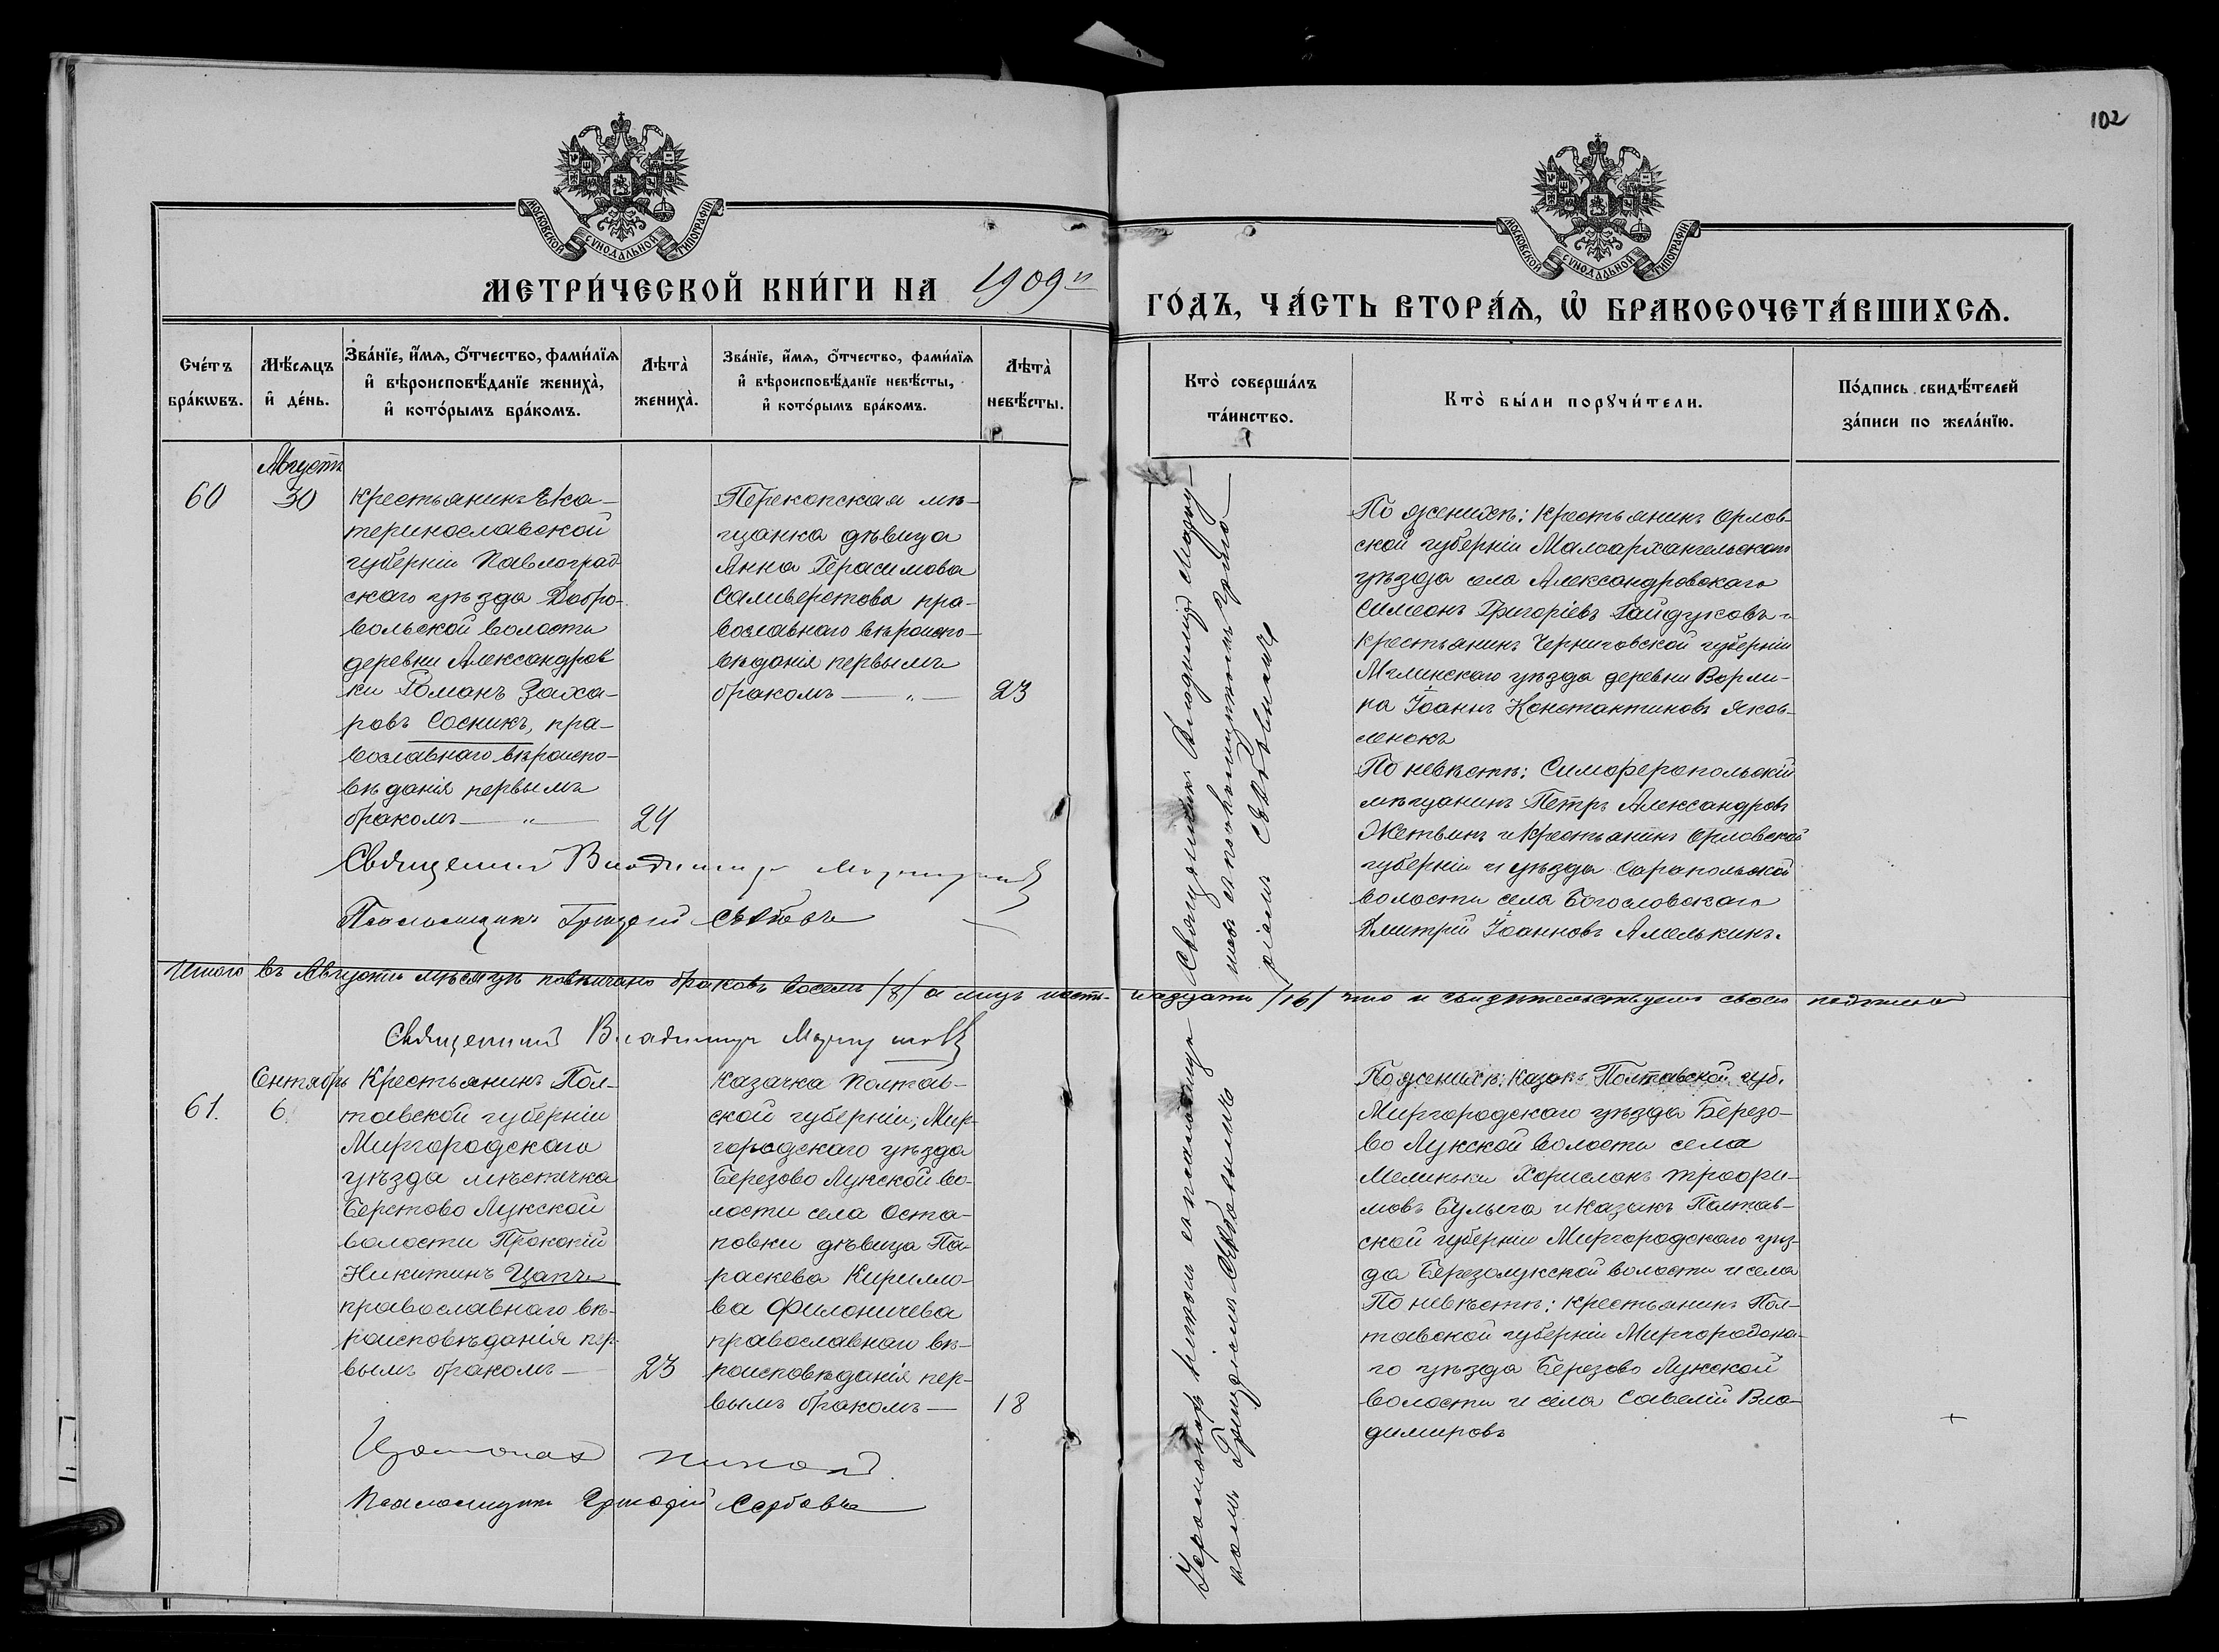 102
МОСКОВСКОЙ СѴНОДАЛЬНОЙ ТИПОГРАФІИ
МОСКОВСКОЙ СѴНОДАЛЬНОЙ ТИПОГРАФІИ
МЕТРИ́ЧЕСКОЙ КНИ́ГИ НА 1909
ГО́ДЪ, ЧА́СТЬ ВТОРА́Ѧ, Ѡ҆ БРАКОСОЧЕТА́ВШИХСѦ.
Сче́тъ бра́кѡвъ.
Мѣ́сѧцъ и҆ де́нь.
Зва́нїе, и҆́мѧ, ѻ҆́тчество, фами́лїѧ
и҆ вѣроисповѣ́данїе жениха̀,
и҆ кото́рымъ бра́комъ.
Лѣта̀ жениха̀.
Зва́нїе, и҆́мѧ, ѻ҆́тчество, фами́лїѧ
и҆ вѣроисповѣ́данїе невѣ́сты,
и҆ кото́рымъ бра́комъ.
Лѣта̀ невѣ́сты.
Кто̀ соверша́лъ
та́инство.
Кто̀ бы́ли порꙋчи́тели.
По́дпись свидѣ́телей
за́писи по жела́нїю.
60
Августъ
30
Крестьянинъ Ека-
теринославской
губерніи Павлоград
скаго уѣзда Добро-
вольской волости
деревни Александров
ки Романъ Заха-
ровъ Сосникъ, пра-
вославнаго вѣроиспо-
вѣданія первымъ
бракомъ — „ —
24
Перекопская мѣ-
щанка дѣвица
Анна Герасимова
Саливерстова пра-
вославнаго вѣроиспо-
вѣданія первымъ
бракомъ — „ —
23
Священникъ Владимиръ
Псаломщикъ Григорій Сѣбовъ
По женихѣ: крестьянинъ Орлов-
ской губерніи Малоархангельскаго
уѣзда села Александровскаго
Симеонъ Григоріевъ Гайдуковъ и
крестьянинъ Черниговской губерніи
Мглинскаго уѣзда деревни Ворми-
на Іоаннъ Константиновъ Яков-
ленокъ
По невѣстѣ: Симферопольскій
мѣщанинъ Петръ Александровъ
Жетвинъ и крестьянинъ Орловской
губерніи и уѣзда Сарапольской
волости села Богословскаго
Дмитрій Іоанновъ Амелькинъ.
Священникъ Владимиръ
съ псаломщикомъ Григо-
ріемъ
Итого въ Августѣ мѣсяцѣ повѣнчано браковъ восемь /8/ а лицъ шесть-надцать /16/ что и свидѣтельствуемъ своею подписью
Священникъ Владимиръ
61.
Сентябрь
6
Крестьянинъ Пол-
тавской губерніи
Миргородскаго
уѣзда мѣстечка
Берстово Лукской
волости Прокопій
Никитинъ Цапъ
православнаго вѣ-
роисповѣданія пер-
вымъ бракомъ —
23
Казачка Полтав-
ской губерніи, Мир-
городскаго уѣзда
Березово Лукской во-
лости села Оста-
повки дѣвица Па-
раскева Кирилло-
ва Филоничева
православнаго вѣ-
роисповѣданія пер-
вымъ бракомъ —
18
Псаломщикъ Григорій Сербовъ
По женихѣ: Казакъ Полтавской губ.
Миргородскаго уѣзда Березо-
во Лукской волости села
Мелиньки Трофи-
мовъ Булыга и казакъ Полтав-
ской губерніи Миргородскаго уѣз-
да Березолукской волости и села
По невѣстѣ: крестьянинъ Пол-
тавской губерніи Миргородска-
го уѣзда Березово Лукской
волости и села Савелій Вла-
димировъ
Іеромонахъ съ псаломщи-
комъ Григоріемъ